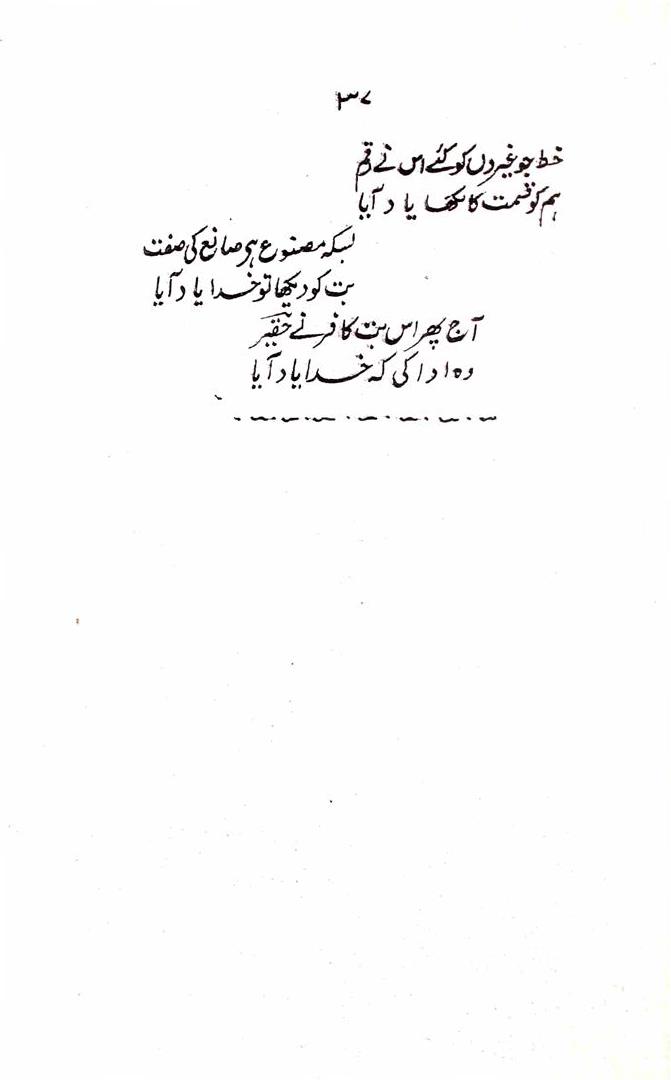 ۳۷
خط جو غیروں کو کئے اس نے رقم
ہم کو قسمت کا لکھا یاد آیا
بسکہ مصنوع ہی صانع کی صفت
بت کو دیکھا تو خدا یاد آیا
آج پھر اس بت کافر نے حقیر
وہ ادا کی کہ خدا یاد آیا